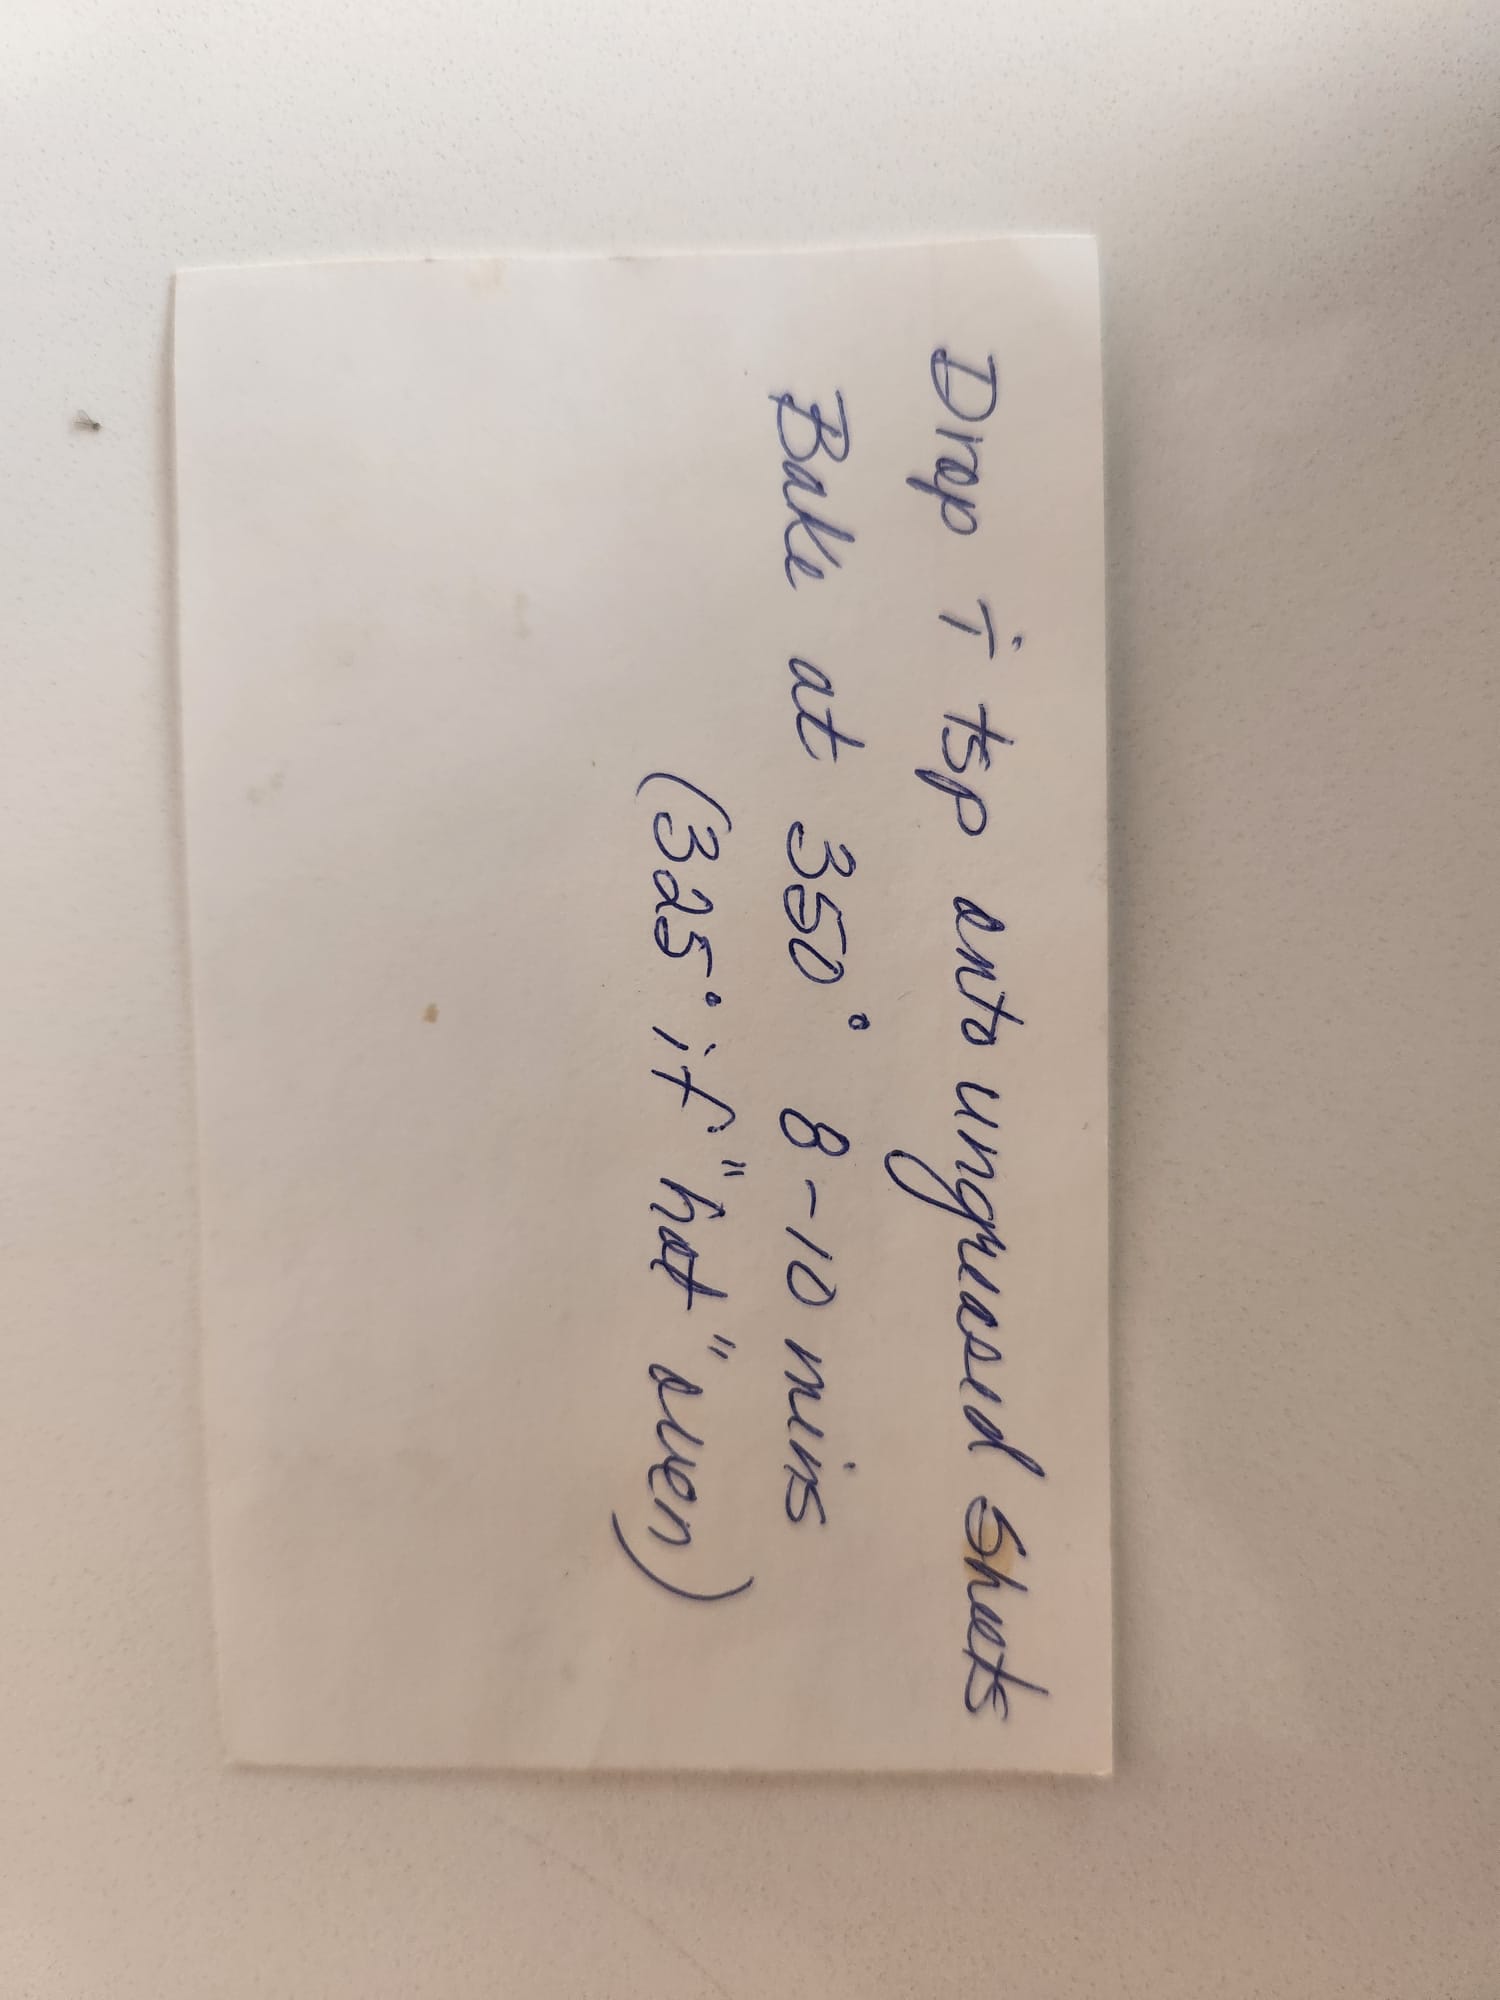 Drop i tsp onto ungreased sheets
Bake at 350° 8-10 mins
(325° if "hot" oven)